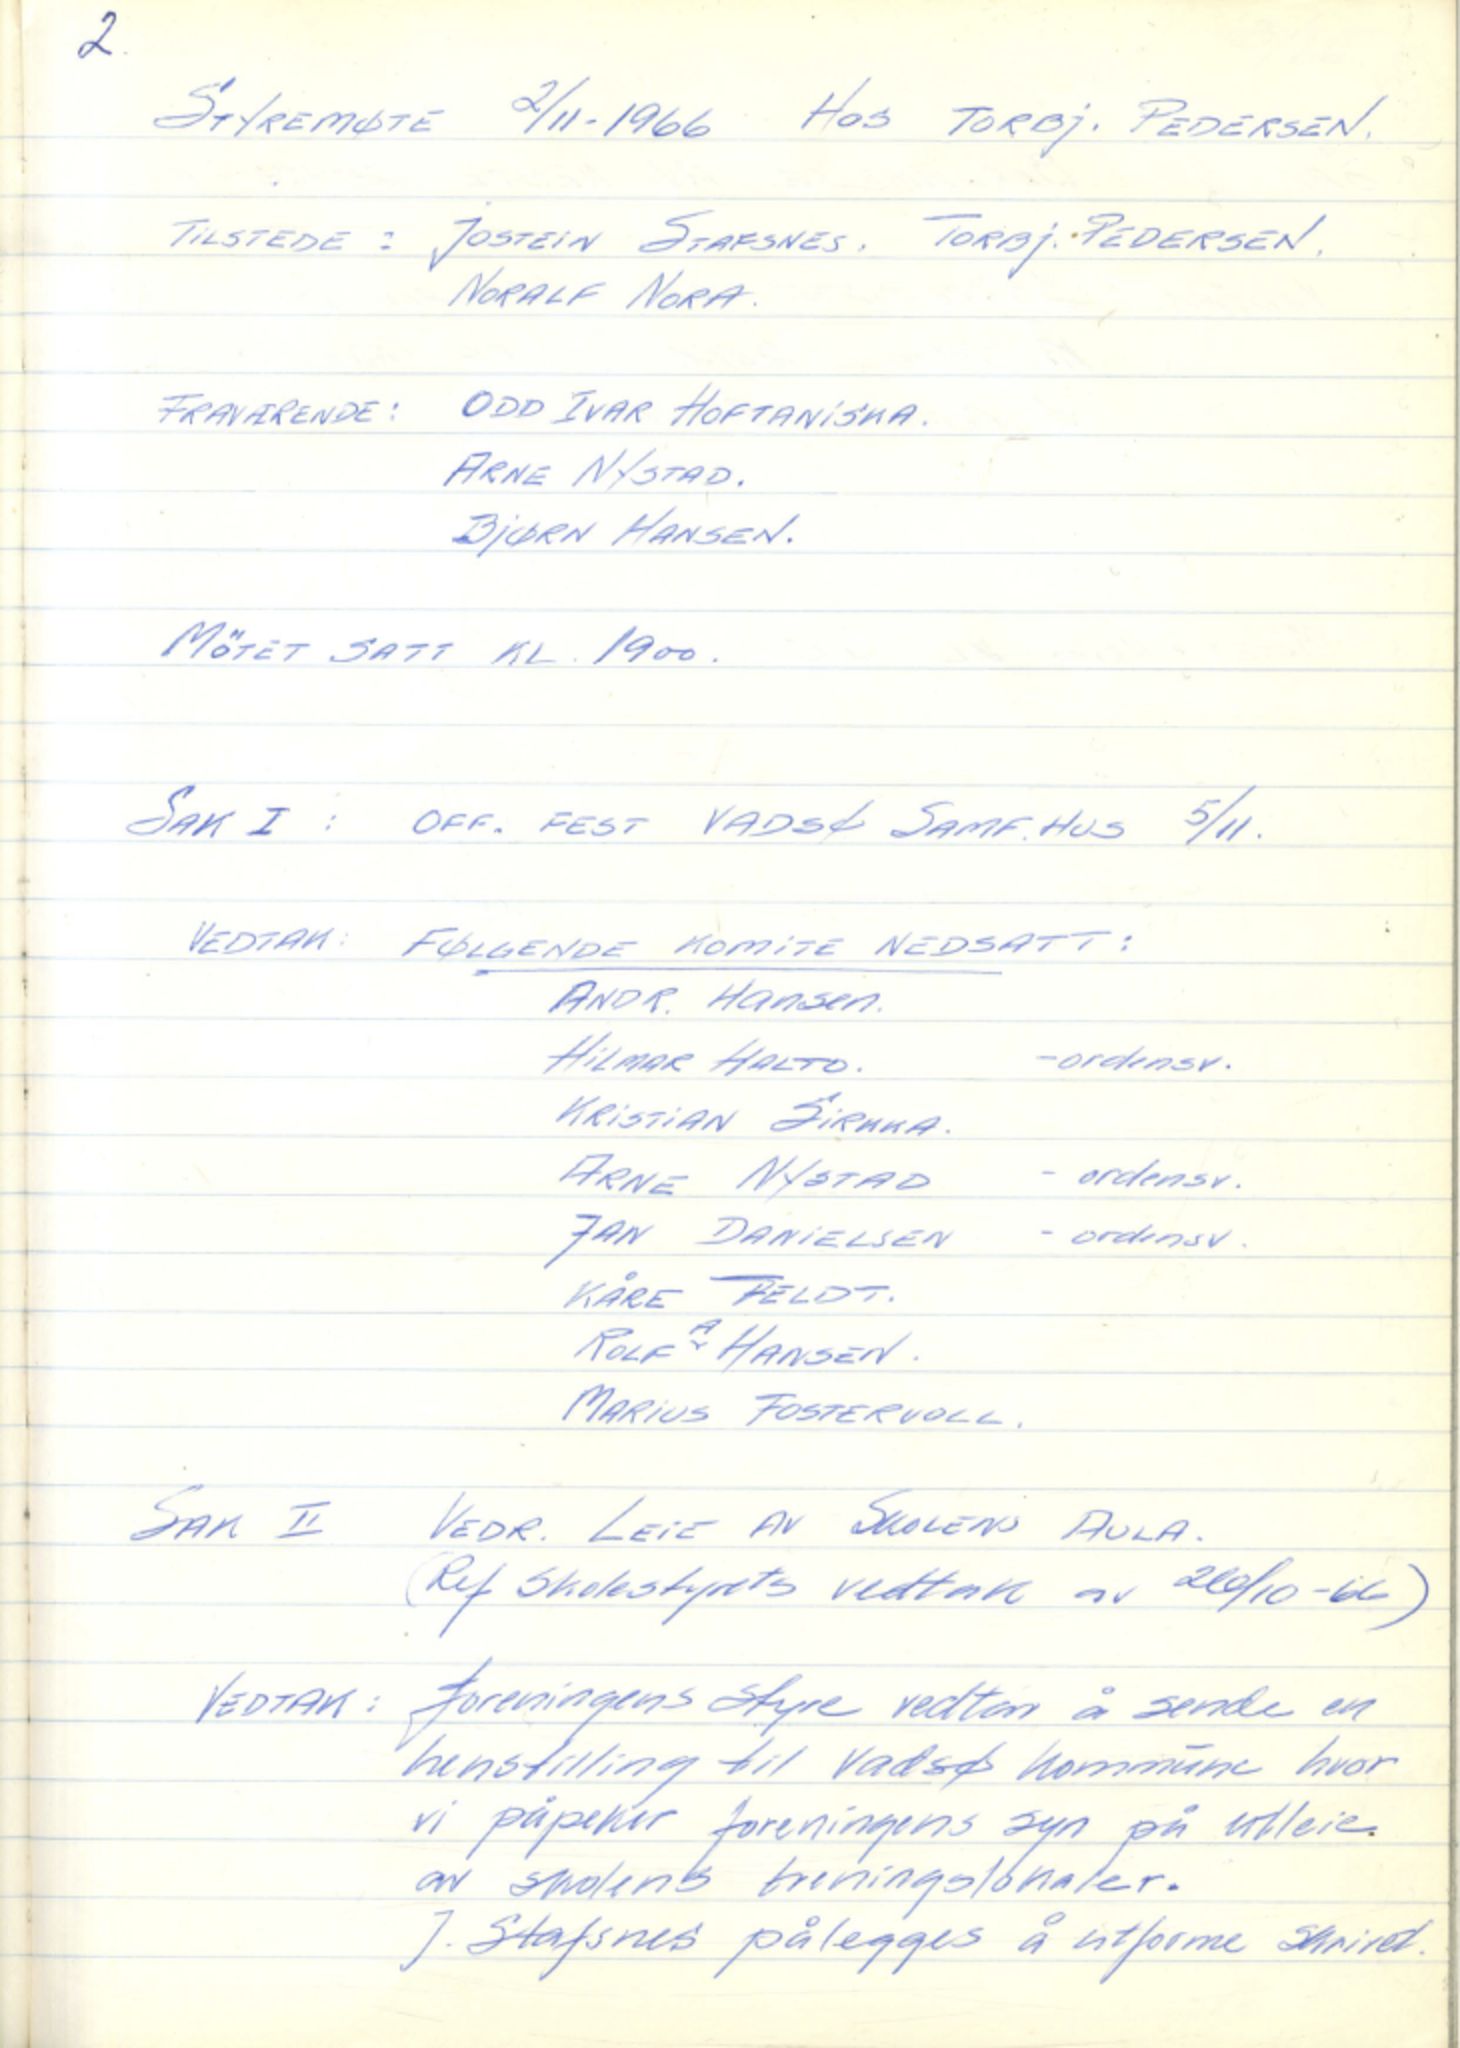 2.
STYREMØTE 2/11-1966 HOS TORBJ. PEDERSEN.
TILSTEDE: JOSTEIN STAFSNES. TORBJ. PEDERSEN.
NORALF NORA.
FRAVÆRENDE: ODD IVAR HOFTANISKA.
ARNE NYSTAD.
BJØRN HANSEN.
MÖTET SATT KL. 1900.
SAK I: OFF. FEST VADSØ SAMF.HUS 5/11.
VEDTAK: FØLGENDE KOMITE NEDSATT:
ANDR. Hansen.
HILMAR HALTO. -ordensv.
KRISTIAN SIRKKA.
ARNE NYSTAD - ordensv.
JAN DANIELSEN - ordensv.
KÅRE FELDT.
ROLF A HANSEN.
MARIUS FOSTERVOLL.
SAK II VEDR. LEIE AV SKOLENS AULA.
(Ref skolestyrets vedtak av /10-66)
VEDTAK: foreningens styre vedtar å sende en
henstilling til Vadsø kommune hvor
vi påpeker foreningens syn på utleie.
av skolens treningslokaler.
J. Stafsnes pålegges å utforme skrivet.